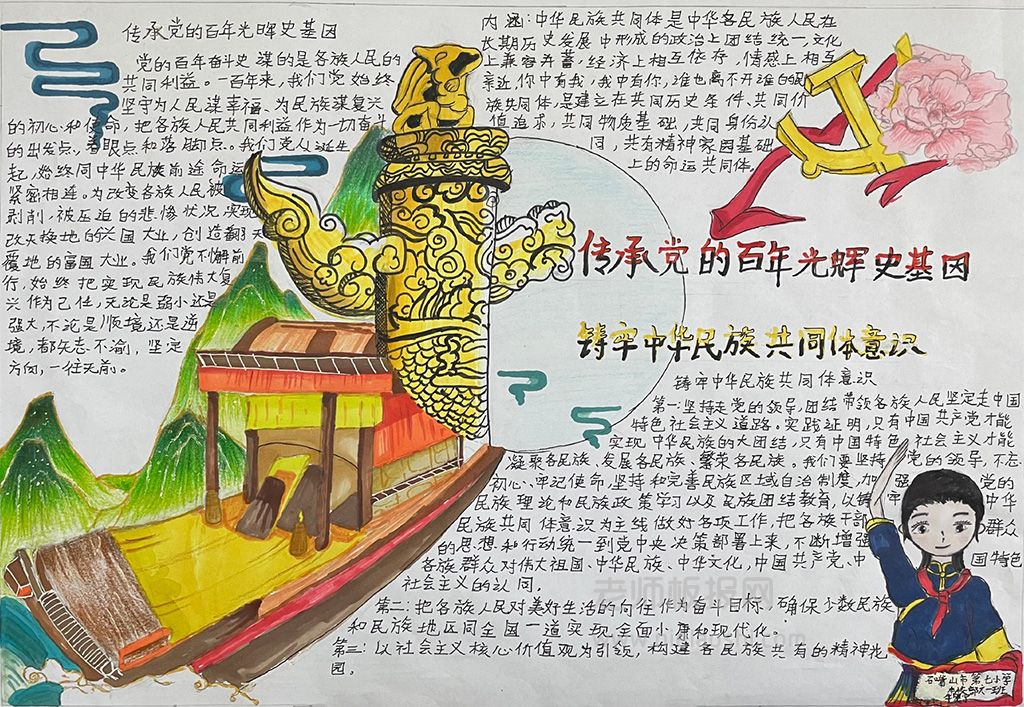 传承党的百年光晖史基因
党的百年奋斗史 谋的是各族人民的
共同利益。一百年来,我们党始终
坚守为人民谋幸福、为民族谋复兴
的初心和使命,把各族人民共同利益作为一切奋斗
的出发点、着眼点和落脚点。我们党从诞生
起,始终同中华民族前途命运
紧密相连。为改变各族人民被
剥削,被压迫的悲惨状况 实现
改天换地的兴国大业,创造翻天
覆地的富国大业。我们党不懈前
行,始终把实现民族伟大复
兴作为己任,无论是弱小还是
强大,不论是顺境还是逆
境,都矢志不渝,坚定
方向,一往无前。
内涵:中华民族共同体是中华各民族人民在
长期历史发展中形成的政治上团结统一,文化
上兼容并蓄,经济上相互依存,情感上相互
亲近,你中有我,我中有你,谁也离不开谁的
族共同体,是建立在共同历史条件、共同价
值追求,共同物质基础,共同身份认
同,共有精神家园基础
上的命运共同体。
传承党的百年光辉史基因
铸牢中华民族共同体意识
铸牢中华民族共同体意识
第一:坚持走党的领导,团结带领各族人民坚定走中国
特色社会主义道路。实践证明,只有中国共产党才能
实现中华民族的大团结,只有中国特色社会主义才能
凝聚各民族、发展各民族、繁荣各民族。我们要坚持党的领导,不忘
初心、牢记使命,坚持和完善民族区域自治制度,加强党的
民族理论和民族政策学习以及民族团结教育,以铸牢中华
民族共同体意识为主线做好各项工作,把各族干部群众
的思想和行动统一到党中央决策部署上来,不断增强
各族群众对伟大祖国、中华民族、中华文化,中国共产党、中国特色
社会主义的认同。
第二:把各族人民对美好生活的向往作为奋斗目标,确保少数民族
和民族地区同全国一道实现全面小康和现代化。
第三:以社会主义核心价值观为引领,构建各民族共有的精神家
园。
老师板报网
石嘴山市第七小学